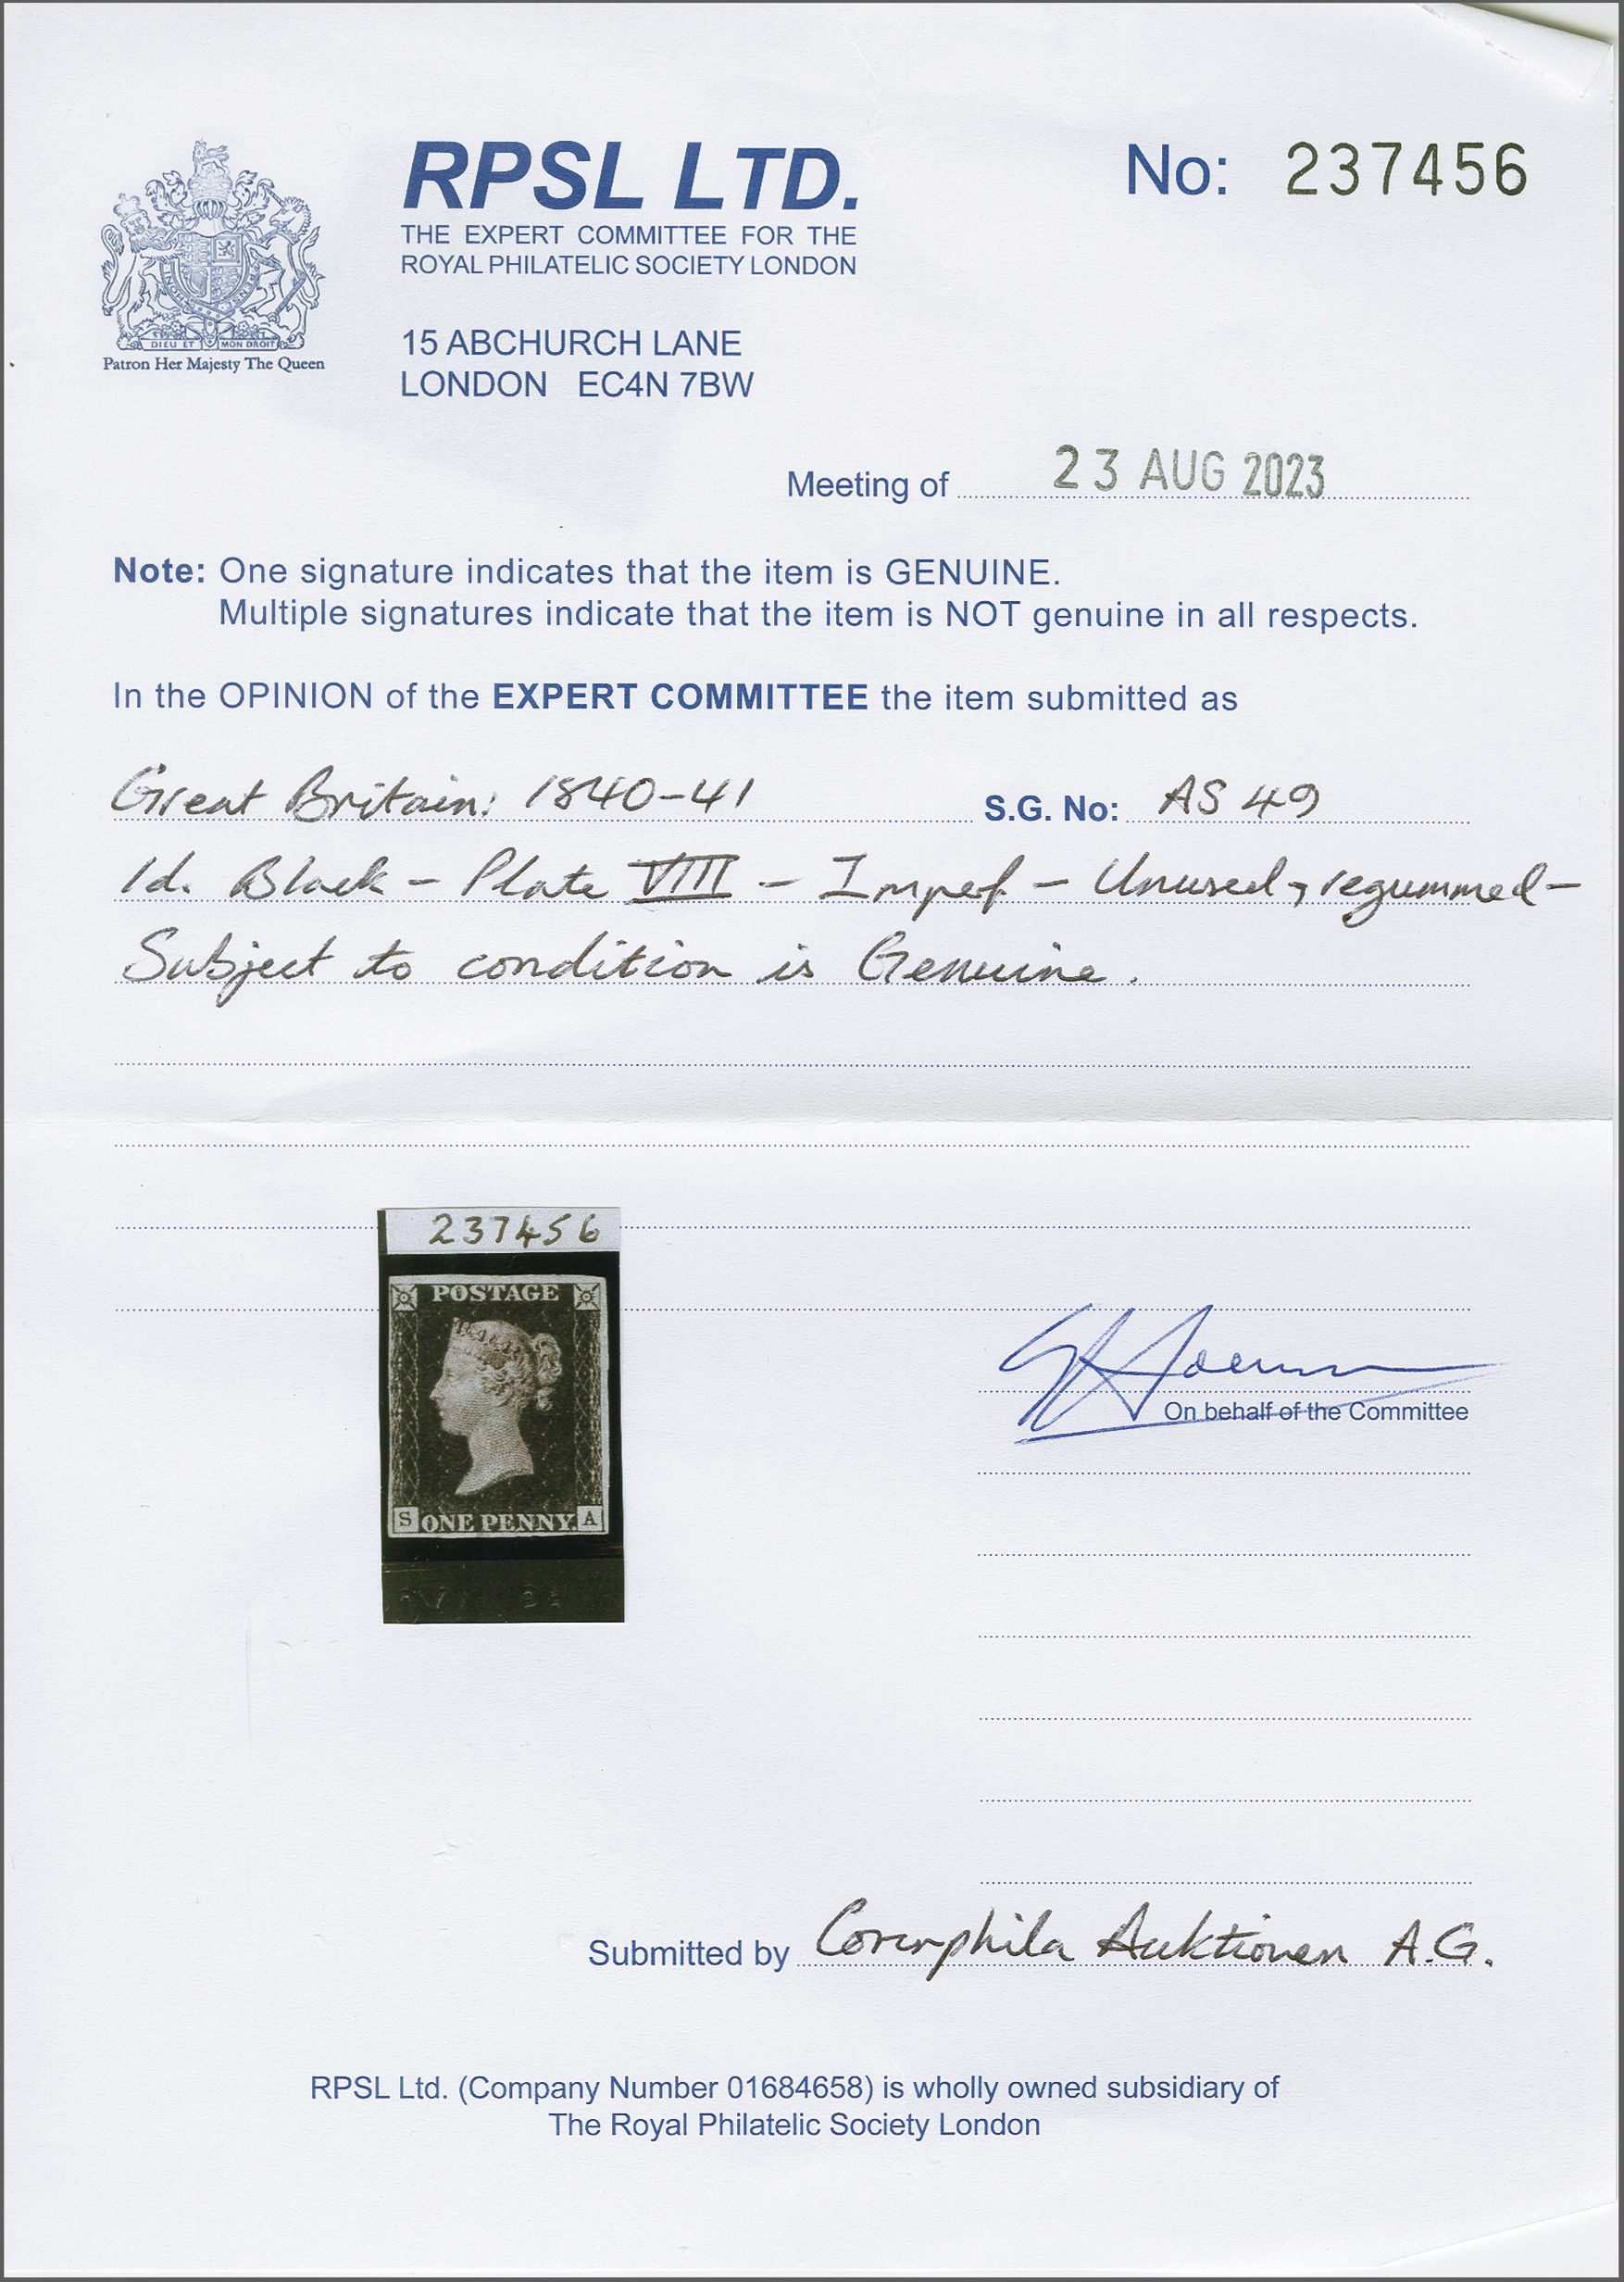 RPSL LTD.
THE EXPERT COMMITTEE FOR THE
ROYAL PHILATELIC SOCIETY LONDON
No: 237456
DIEU ET MON DROIT
Patron Her Majesty The Queen
15 ABCHURCH LANE
LONDON EC4N 7BW
Meeting of 23 AUG 2023
Note: One signature indicates that the item is GENUINE.
Multiple signatures indicate that the item is NOT genuine in all respects.
In the OPINION of the EXPERT COMMITTEE the item submitted as
Great Britain: 1840-41 S.G. No: AS 49
1d. Black - Plate VIII - Imperf - Unused, regummed -
Subject to condition is Genuine.
237456
POSTAGE
S ONE PENNY. A
On behalf of the Committee
Submitted by Corinphila Auktionen A.G.
RPSL Ltd. (Company Number 01684658) is wholly owned subsidiary of
The Royal Philatelic Society London